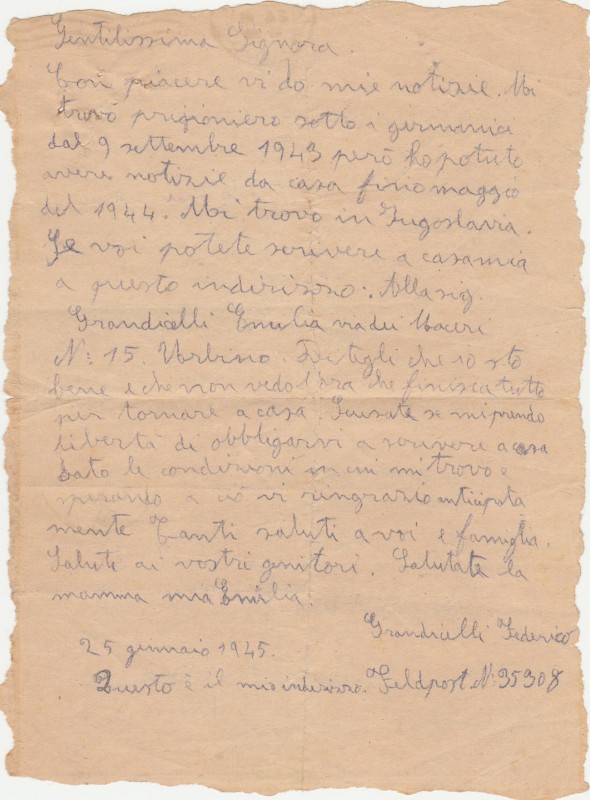 Gentilissima Signora.
Con piacere vi do mie notizie. Mi
trovo prigioniero sotto i germania
dal 9 settembre 1943 però ho potuto
avere notizie da casa fino maggio
del 1944. Mi trovo in Jugoslavia.
Se voi potete scrivere a casa mia
a questo indirizzo: Alla sig.
Grandicelli Emilia via dei Maceri
N: 15. Urbino. Ditegli che io sto
bene e che non vedo l'ora che finisca tutto
per tornare a casa. Scusate se mi prendo
libertà di obbligarvi a scrivere a casa
dato le condizioni in cui mi trovo e
sperando a ciò vi ringrazio anticipata
mente Tanti saluti a voi e famiglia.
Saluti ai vostri genitori. Salutate la
mamma mia Emilia.
Grandicelli Federico
25 gennaio 1945.
Questo è il mio indirizzo. Feldpost. N: 35308